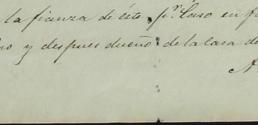 la fianza de éste pr. Caso en f
no y despues dueño de la casa de
A